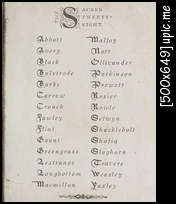 THE
SACRED
TWENTY-
EIGHT
Abbott
Avery
Black
Bulstrode
Burke
Carrow
Crouch
Fawley
Flint
Gaunt
Greengrass
Lestrange
Longbottom
Macmillan
Malfoy
Nott
Ollivander
Parkinson
Prewett
Rosier
Rowle
Selwyn
Shacklebolt
Shafiq
Slughorn
Travers
Weasley
Yaxley
[500x649] upic.me